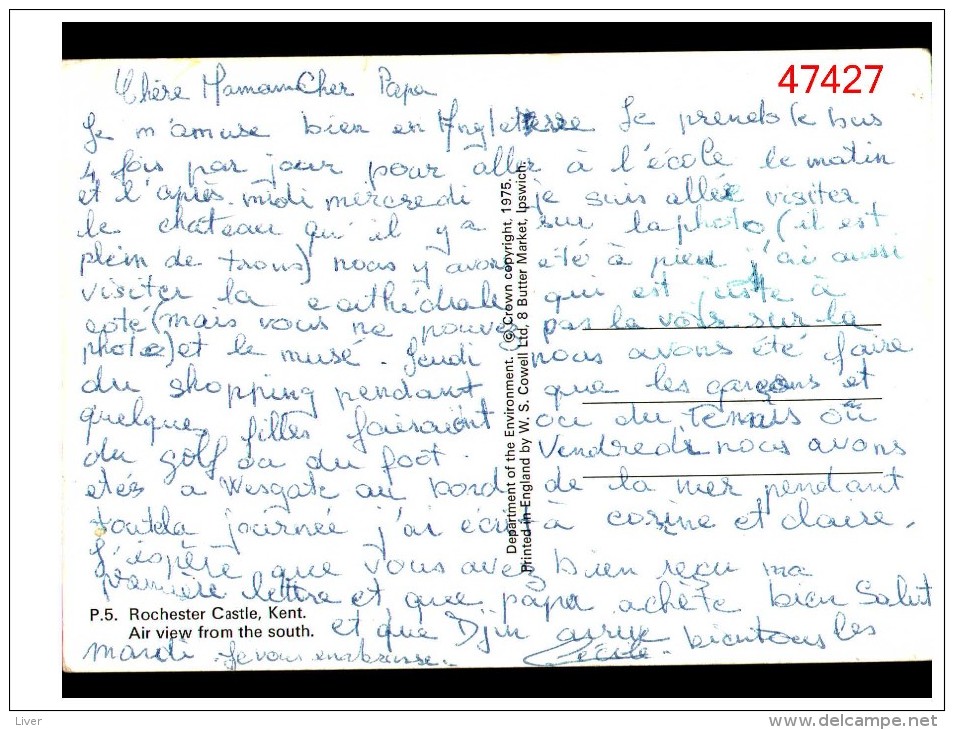 47427
Chère Maman Cher Papa
Je m'amuse bien en Angleterre Je prends le bus
4 fois par jour pour aller à l'école le matin
et l'après-midi mercredi je suis allée visiter
le château qu'il y a sur la photo (il est
plein de trous) nous y avons été à pied j'ai aussi
visiter la cathédrale qui est juste à
coté (mais vous ne pouvez pas la voir sur la
photo) et le musé. Jeudi nous avons été faire
du shopping pendant que les garçons et
quelque filles faisaient ou du Tennis ou
du golf ou du foot. Vendredi nous avons
etés a Wesgate au bord de la mer pendant
toute la journée j'ai écrit à corine et claire.
J'espère que vous avez bien reçu ma
première lettre et que papa achète bien Salut
et que Djin arrive bien tous les
mardi. Je vous embrasse. Cécile.
P.5. Rochester Castle, Kent.
Air view from the south.
Department of the Environment. © Crown copyright, 1975.
Printed in England by W. S. Cowell Ltd, 8 Butter Market, Ipswich.
Liver
delcampe.net